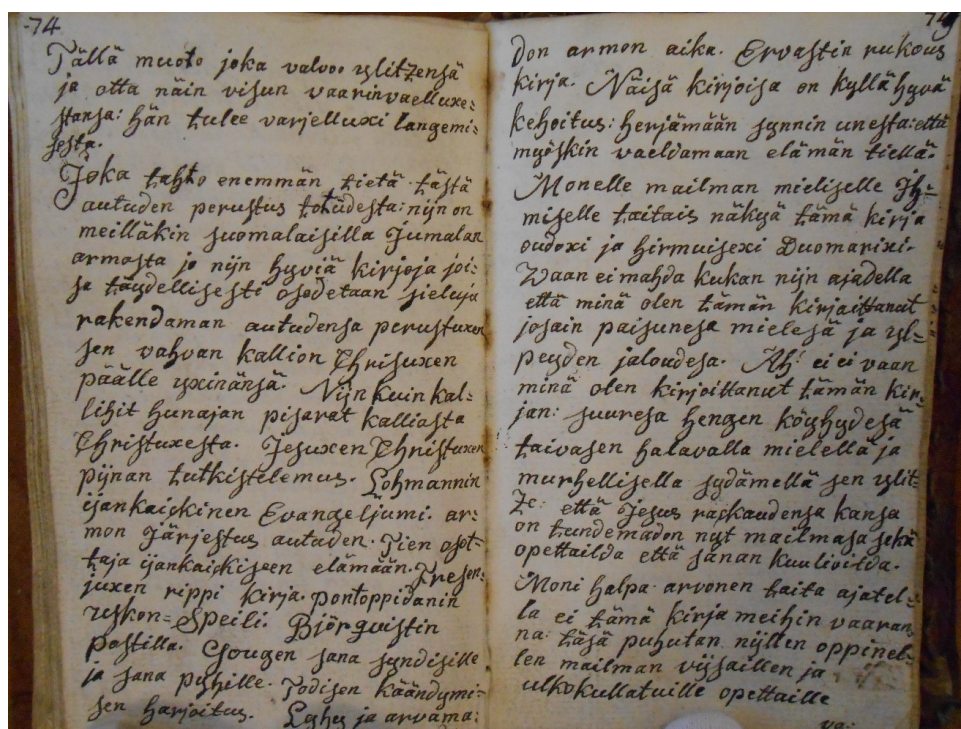 74
Tällä muoto joka valvoo ylitzensä
ja otta näin visun vaarinvaelluxe=
stansa: hän tulee varjelluxi langemi=
sesta.
Joka tahto enemmän tietä tästä
autuden perustus totudesta: nijn on
meilläkin suomalaisilla Jumalan
armosta jo nijn hyviä kirjoja joi=
sa täydellisesti osodetaan sieluja
rakendaman autudensa perustuxen
sen vahvan kallion Christuxen
päälle yxinänsä. Nijn kuin kal=
lihit hunajan pisarat kalliosta
Christuxesta. Jesuxen Christuxen
pijnan tutkistelemus. Lohmannin
ijankaickinen Evangeljumi. ar=
mon Järjestus autuden. Tien osot=
taja ijankaickiseen elämään. Fresen=
juxen rippi kirja. pontoppidanin
uskon=Speili. Björquistin
postilla. Gougen sana syndisille
ja sana pyhille. Todisen käändymi=
sen harjoitus. Lyhy ja arvama:
don armon aika. Ervastin rukous
kirja. Näisä kirjoisa on kyllä hyvä
kehoitus: herjämään synnin unesta: että
myöskin vaeldamaan elämän tiellä.
Monelle mailman mieliselle Ih=
miselle taitais näkyä tämä kirja
oudoxi ja hirmuisexi Duomarixi.
Waan ei mahda kukan nijn ajadella
että minä olen tämän kirjaittanut
josain paisunesa mielesä ja yl=
peyden jaloudesa. Ah! ei ei vaan
minä olen kirjoittanut tämän kir=
jan: suuresa hengen köyhydesä
taivasen halavalla mielellä ja
murhellisella sydämellä sen ylit=
ze: että Jesus raskaudensa kansa
on tundemadon nyt mailmasa sekä
opettailda että sanan kuulioilda.
Moni halpa arvonen taita ajatel=
la ei tämä kirja meihin vaaran
na: täsä puhutan nijtten oppinel=
len mailman vijsaillen ja
ulkokullatuille opettaille
va: